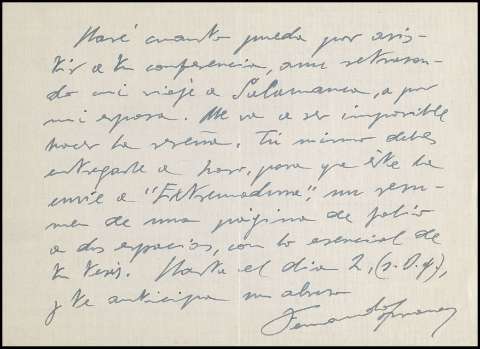 Haré cuanto pueda por asis-
tir a tu conferencia, aun retrasan-
do mi viaje a Salamanca, a por
mi esposa. Me va a ser imposible
hacer la reseña. Tú mismo debes
entregarle a para que éste la
envíe a "Extremadura", un resu-
men de una página de folio
a dos espacios, con lo esencial de
tu tesis. Hasta el día 2, (s. D. q.),
y te anticipa un abrazo
Fernando